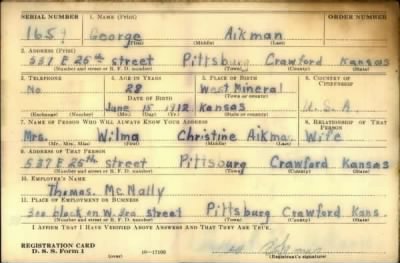 SERIAL NUMBER 1. NAME (Print) ORDER NUMBER
1659 George Aikman
(First) (Middle) (Last)
2. ADDRESS (Print)
537 E 25th street Pittsburg Crawford Kansas
(Number and street or R. F. D. number) (Town) (County) (State)
3. TELEPHONE 4. AGE IN YEARS 5. PLACE OF BIRTH 6. COUNTRY OF CITIZENSHIP
No 28 West Mineral
DATE OF BIRTH (Town or county)
June 15 1912 Kansas U.S.A.
(Exchange) (Number) (Mo.) (Day) (Yr.) (State or country)
7. NAME OF PERSON WHO WILL ALWAYS KNOW YOUR ADDRESS 8. RELATIONSHIP OF THAT PERSON
Mrs. Wilma Christine Aikman Wife
(Mr., Mrs., Miss) (First) (Middle) (Last)
9. ADDRESS OF THAT PERSON
537 E 25th street Pittsburg Crawford Kansas
(Number and street or R. F. D. number) (Town) (County) (State)
10. EMPLOYER'S NAME
Thomas. McNally
11. PLACE OF EMPLOYMENT OR BUSINESS
300 block on W. 3rd. street Pittsburg Crawford Kans.
(Number and street or R. F. D. number) (Town) (County) (State)
I AFFIRM THAT I HAVE VERIFIED ABOVE ANSWERS AND THAT THEY ARE TRUE.
REGISTRATION CARD
D. S. S. Form 1 (over) 16—17105 (Registrant's signature)